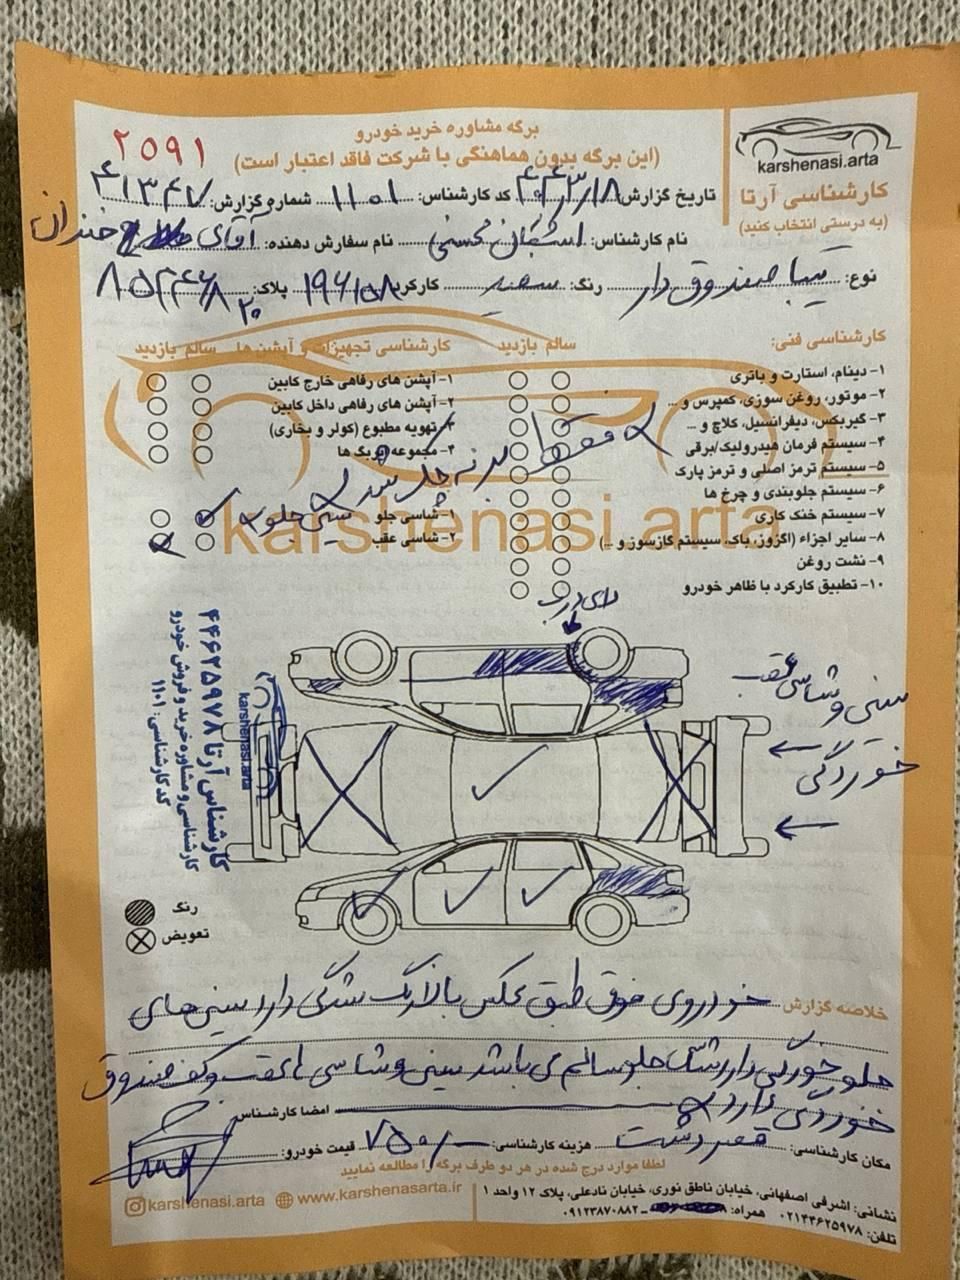 برگه مشاوره خرید خودرو
۲۵۹۱
(این برگه بدون هماهنگی با شرکت فاقد اعتبار است)
karshenasi.arta
کارشناسی آرتا
(به درستی انتخاب کنید)
تاریخ گزارش: کد کارشناس: ۱۱۰۱ شماره گزارش: ۴۱۳۴۷
نام کارشناس: اشکان محسنی نام سفارش دهنده: آقای خندان
نوع: تیبا صندوق دار رنگ: سفید کارکرد: ۱۹۶۱۵۸ پلاک:
کارشناسی فنی: سالم بازدید
۱- دینام، استارت و باتری
۲- موتور، روغن سوزی، کمپرس و ...
۳- گیربکس، دیفرانسیل، کلاچ و ...
۴- سیستم فرمان هیدرولیک/برقی
۵- سیستم ترمز اصلی و ترمز پارک
۶- سیستم جلوبندی و چرخ ها
۷- سیستم خنک کاری
۸- سایر اجزاء (اگزوز، باک، سیستم گازسوز و ...)
۹- نشت روغن
۱۰- تطبیق کارکرد با ظاهر خودرو
کارشناسی تجهیزات و آپشن ها سالم بازدید
۱- آپشن های رفاهی خارج کابین
۲- آپشن های رفاهی داخل کابین
۳- تهویه مطبوع (کولر و بخاری)
۴- مجموعه ایربگ ها
فقط بدنه چک شد
سینی جلو
۱- شاسی جلو
۲- شاسی عقب
karshenasi.arta
سینی و شاسی عقب
خوردگی
کارشناس آرتا ۴۴۶۲۵۹۷۸
کارشناسی و مشاوره خرید و فروش خودرو
کد کارشناسی: ۱۱۰۱
karshenasi.arta
رنگ
تعویض
خلاصه گزارش خودروی فوق طبق عکس بالا رنگ شدگی دارد سینی های
جلو خوردگی دارد شاسی جلو سالم می باشد سینی و شاسی های عقب و کف صندوق
خوردگی دارد امضا کارشناس
مکان کارشناسی: قصردشت هزینه کارشناسی: ۷۵۰ قیمت خودرو:
لطفا موارد درج شده در هر دو طرف برگه را مطالعه نمایید
نشانی: اشرفی اصفهانی، خیابان ناطق نوری، خیابان نادعلی، پلاک ۱۲ واحد ۱
تلفن: ۰۲۱۴۴۶۲۵۹۷۸ همراه: ۰۹۱۲۳۸۷۰۸۸۲
karshenasi.arta www.karshenasarta.ir